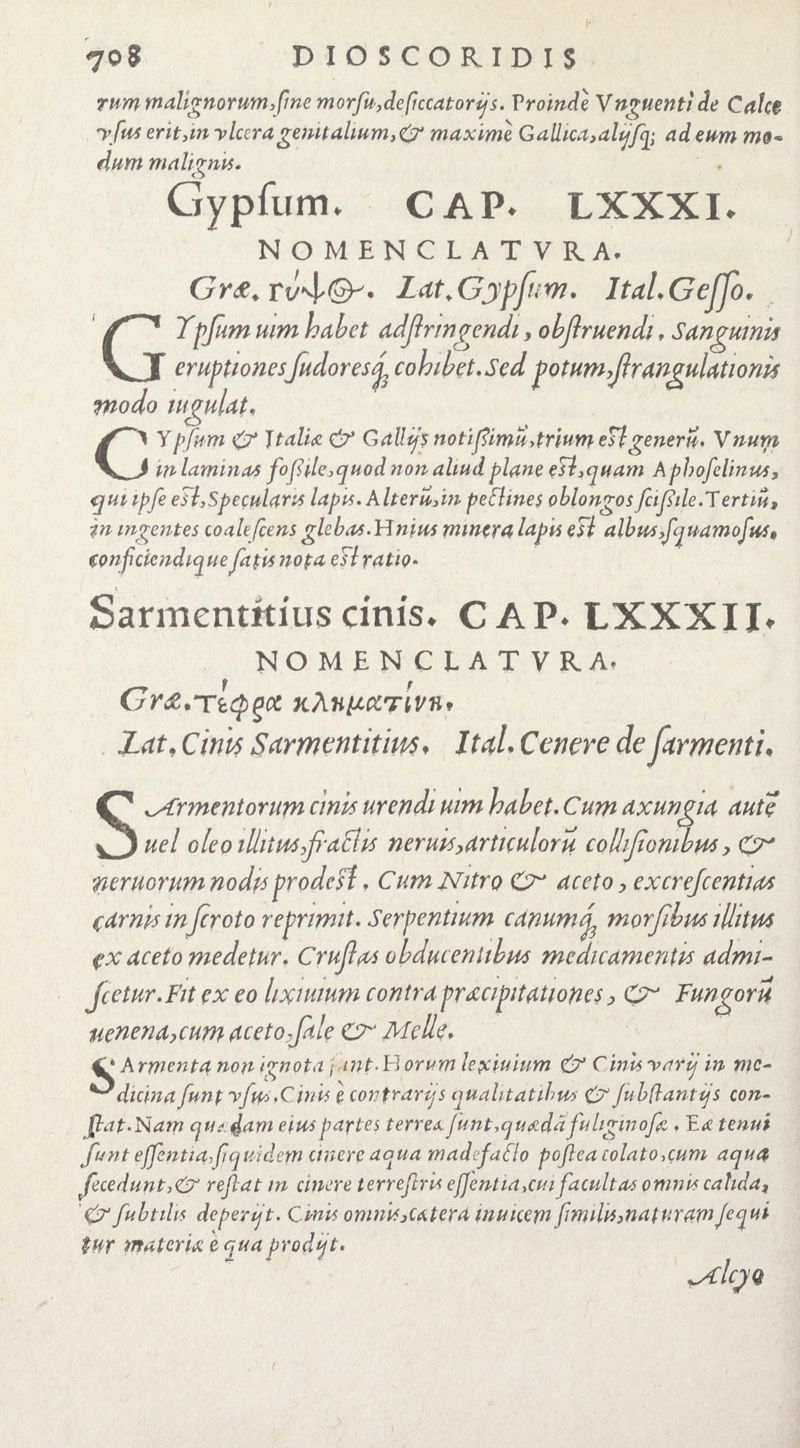 708 DIOSCORIDIS
rum malignorum,ſine morſu,deſiccatorijs. Proindè Vnguenti de Calce
vſus erit,in vlcera genitalium,& maximè Gallica,alijſq; ad eum mo-
dum malignis.
Gypſum. CAP. LXXXI.
NOMENCLATVRA.
Græ. γύψος. Lat. Gypſum. Ital. Geſſo.
GYpſum uim habet adſtringendi, obſtruendi. Sanguinis
eruptiones ſudoresq́; cohibet. Sed potum,ſtrangulationis
modo iugulat.
GYpſum & Italiæ & Gallijs notiſſimū,trium eſt generū. Vnum
in laminas foſſile,quod non aliud plane eſt,quam Aphoſelinus,
qui ipſe eſt,Specularis lapis. Alterū,in pectines oblongos ſciſſile. Tertiū,
in ingentes coaleſcens glebas. Hnius minera lapis eſt albus,ſquamoſus,
conficiendique ſatis nota eſt ratio.
Sarmentitius cinis. CAP. LXXXII.
NOMENCLATVRA.
Græ. τέφρα κληματίνη.
Lat. Cinis Sarmentitius. Ital. Cenere de ſarmenti.
SArmentorum cinis urendi uim habet. Cum axungia autē
uel oleo illitus,fractis neruis,articulorū colliſionibus, &
neruorum nodis prodeſt. Cum Nitro & aceto, excreſcentias
carnis in ſcroto reprimit. Serpentium canumq́; morſibus illitus
ex aceto medetur. Cruſtas obducentibus medicamentis admi-
ſcetur. Fit ex eo lixiuium contra præcipitationes, & Fungorū
uenena,cum aceto,ſale & Melle.
SArmenta non ignota ſunt. Horum lexiuium & Cinis varij in me-
dicina ſunt vſus. Cinis è contrarijs qualitatibus & ſubſtantijs con-
ſtat. Nam quædam eius partes terreæ ſunt,quædā fuliginoſæ. Eæ tenui
ſunt eſſentia,ſiquidem cinere aqua madefacto poſtea colato,cum aqua
ſecedunt,& reſtat in cinere terreſtris eſſentia,cui facultas omnis calida,
& ſubtilis deperijt. Cinis omnis,cætera inuicem ſimilis,naturam ſequi
tur materiæ è qua prodijt.
Alcyo